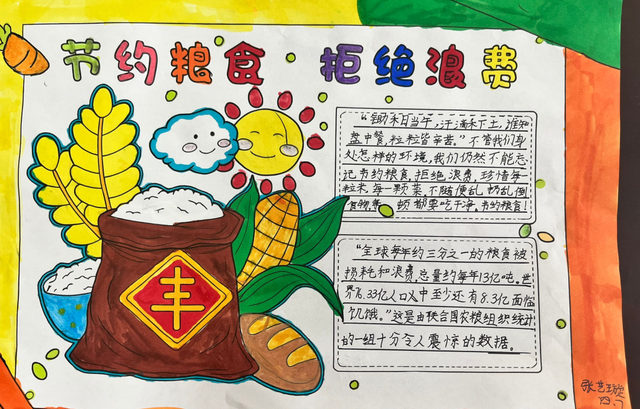 节约粮食 拒绝浪费
"锄禾日当午,汗滴禾下土,谁知
盘中餐,粒粒皆辛苦。"不管我们身
处怎样的环境,我们仍然不能忘
记节约粮食,拒绝浪费,珍惜每一
粒米,每一颗菜,不随便乱扔乱倒
食物,每一顿都要吃干净,节约粮食!
"全球每年约三分之一的粮食被
损耗和浪费,总量约每年13亿吨。世
界76.33亿人口中至少还有8.3亿面临
饥饿。"这是由联合国农粮组织统计
的一组十分令人震惊的数据。
丰
张艺璇
四.7